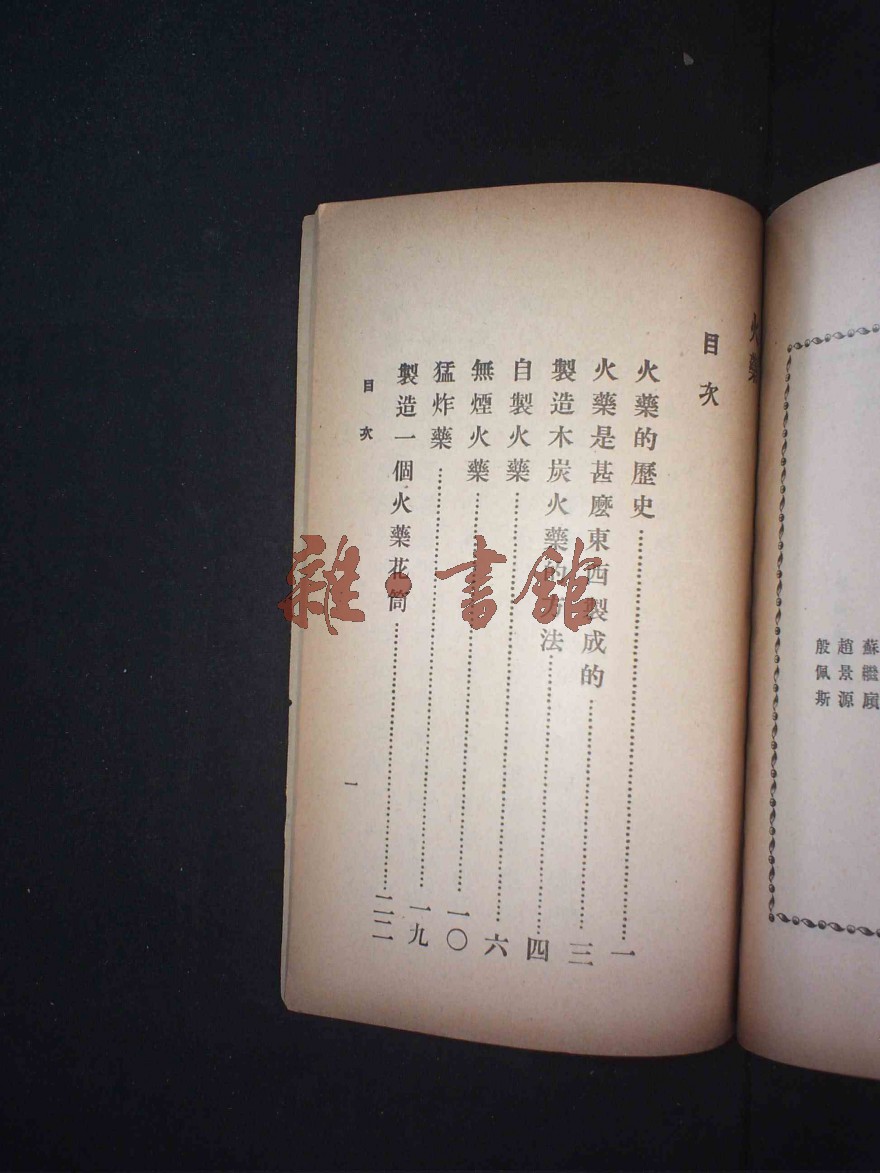 蘇繼廎
趙景源
殷佩斯
火藥
目次
火藥的歷史……一
火藥是甚麼東西製成的……三
製造木炭火藥的方法……四
自製火藥……六
無煙火藥……一〇
猛炸藥……一九
製造一個火藥花筒……二二
目次
一
雜·書館